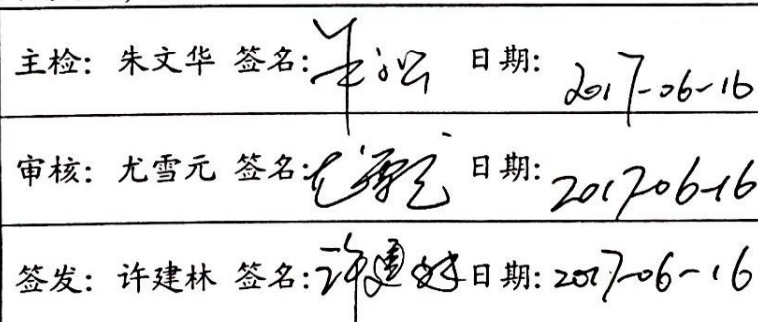 主检：朱文华 签名： 日期：2017-06-16
审核：尤雪元 签名：尤雪元 日期：2017-06-16
签发：许建林 签名：许建林 日期：2017-06-16